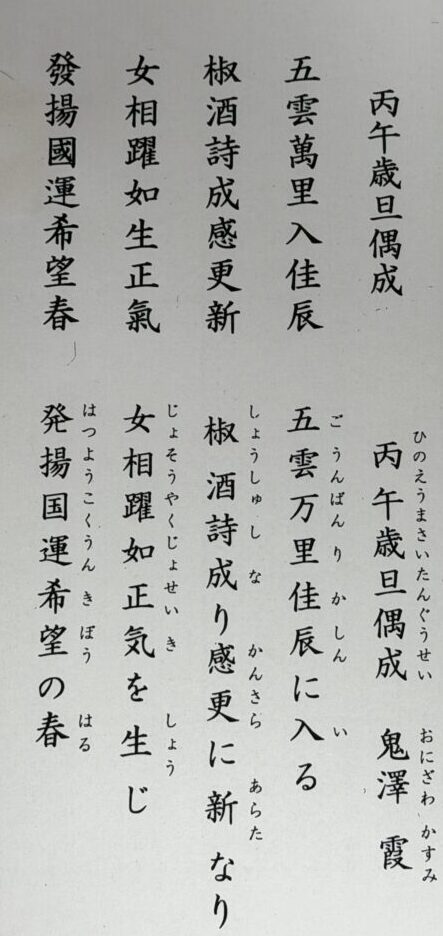 丙午歳旦偶成
五雲萬里入佳辰
椒酒詩成感更新
女相躍如生正氣
發揚國運希望春
丙午歳旦偶成 鬼澤 霞
ひのえうまさいたんぐうせい おにざわ かすみ
五雲万里佳辰に入る
ごうんばんりかしん い
椒酒詩成り感更に新なり
しょうしゅしな かんさら あらた
女相躍如正気を生じ
じょそうやくじょせいき しょう
発揚国運希望の春
はつようこくうんきぼう はる